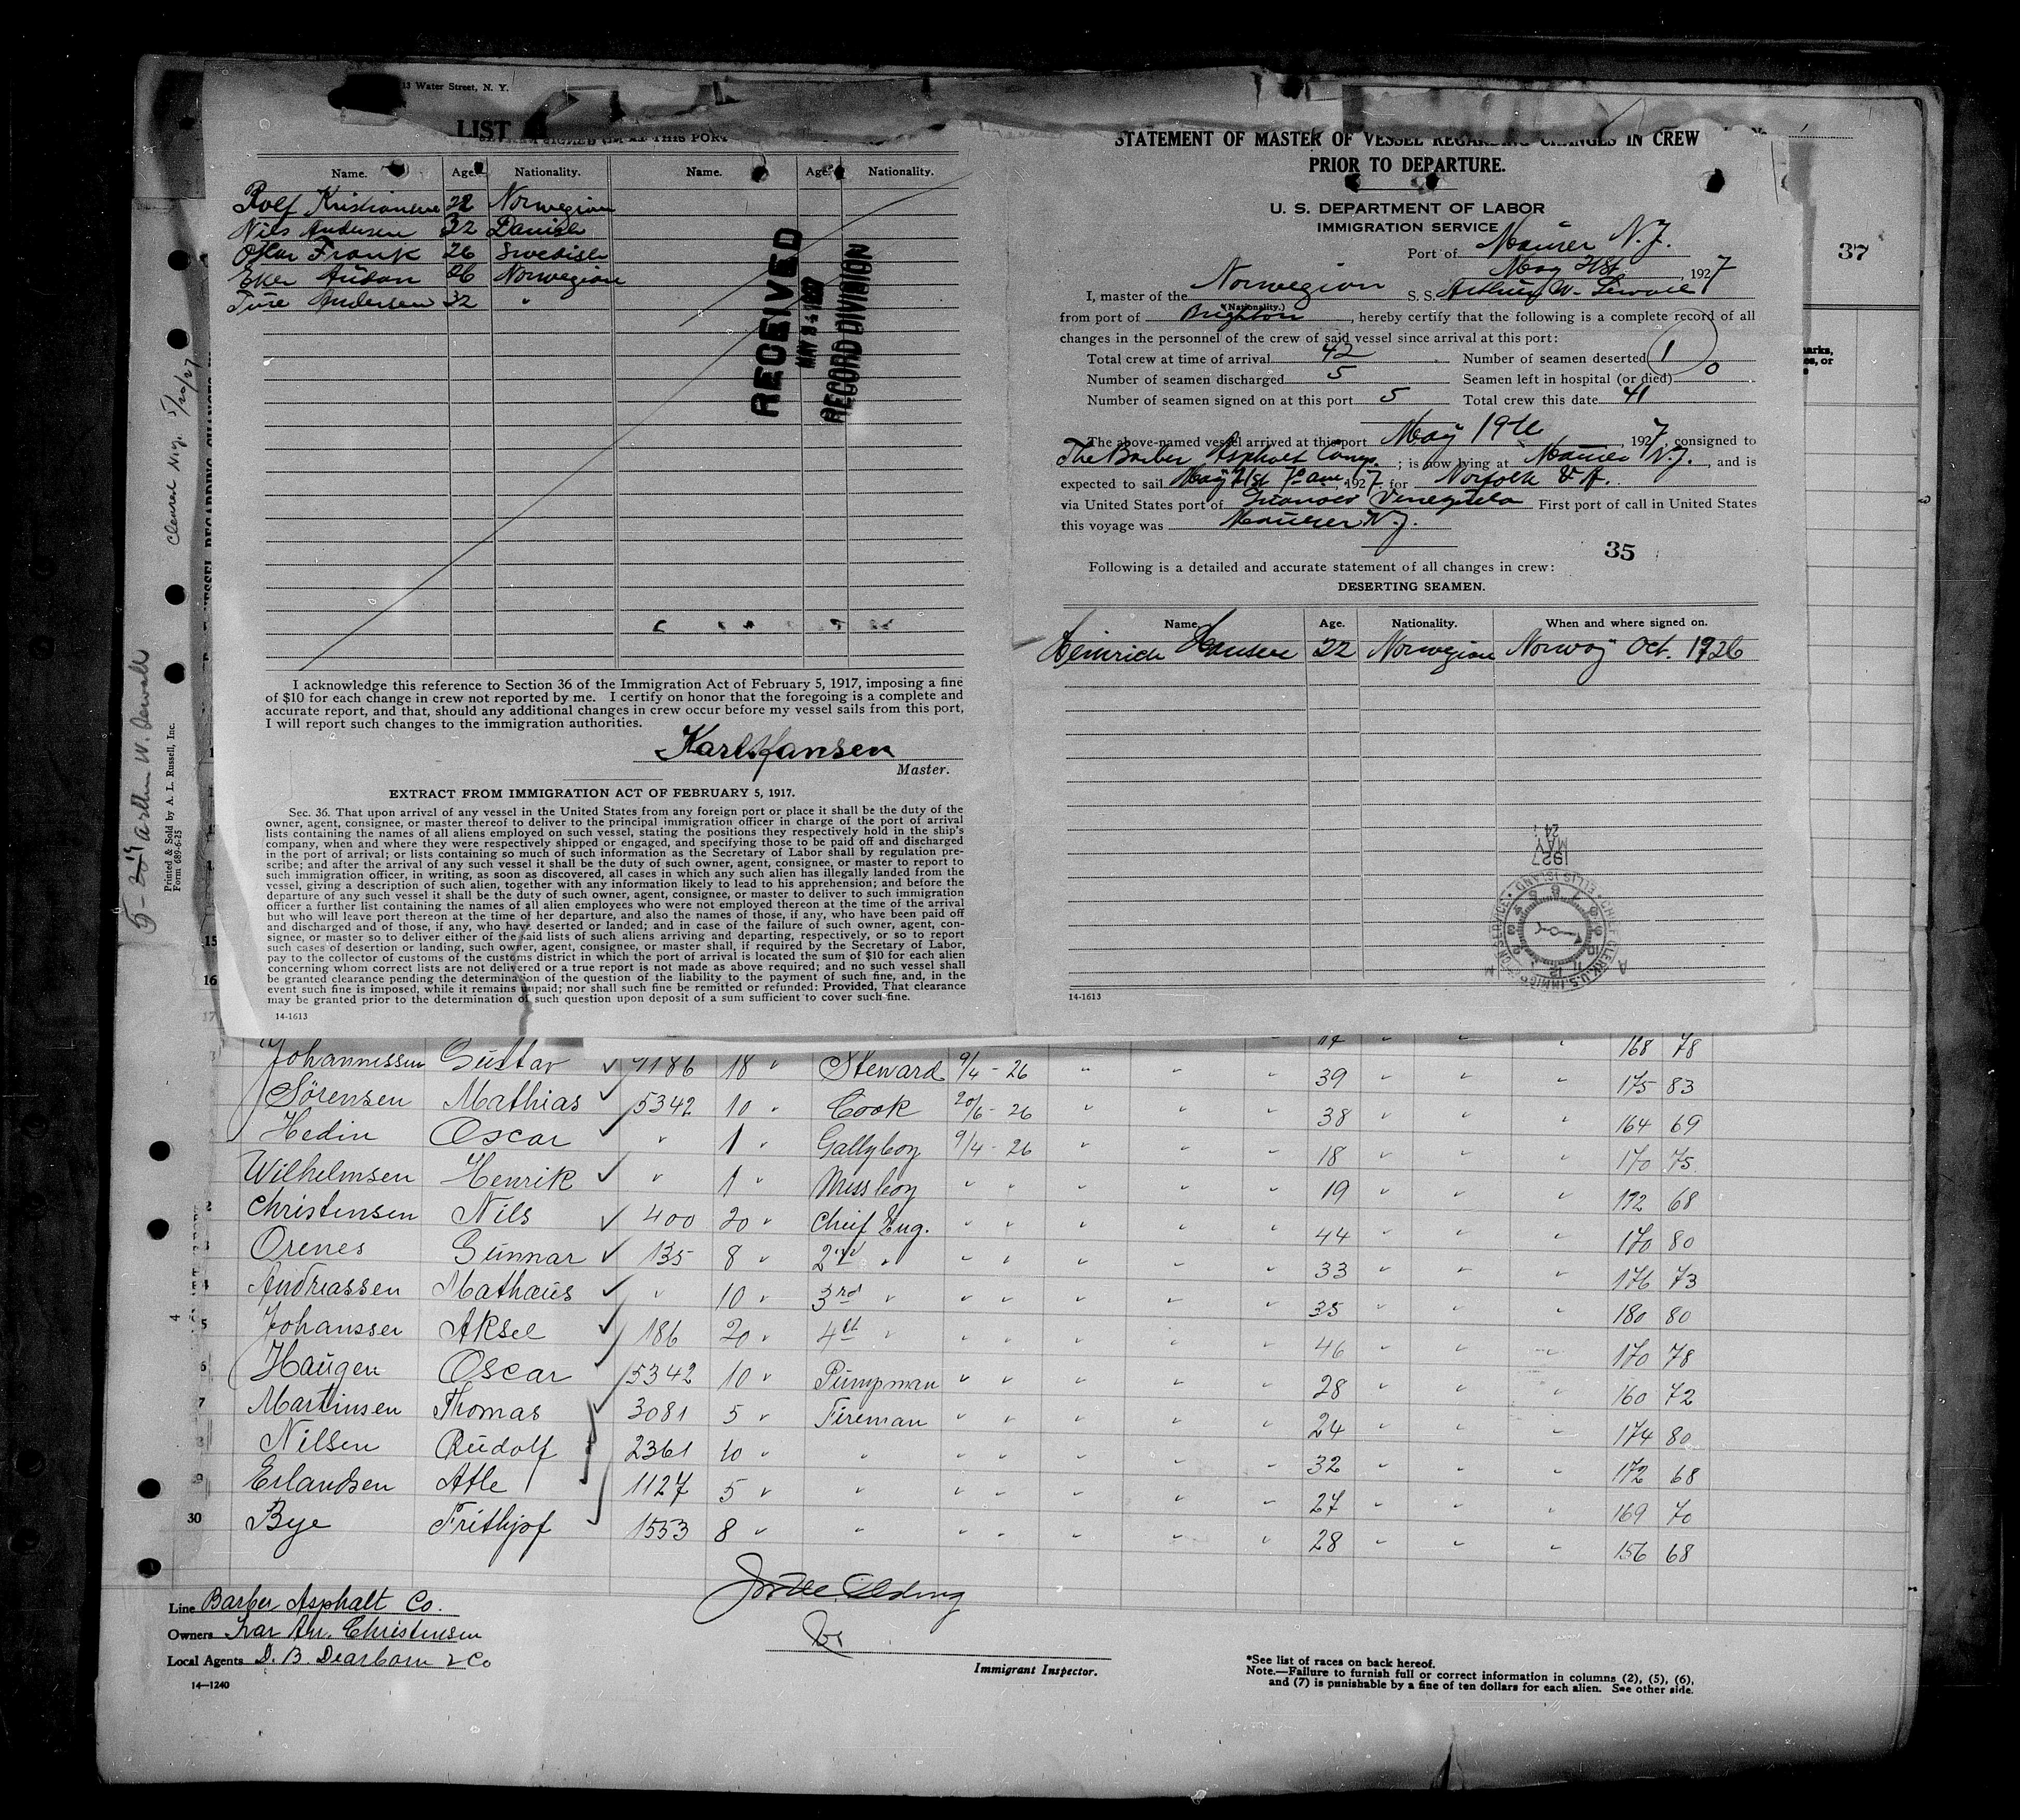 13 Water Street, N. Y.
LIST
SIGNED ON AT THIS PORT
Name. Age. Nationality. Name. Age. Nationality.
Rolf Kristiansen 22 Norwegian
Nils Andersen 32 Danish
Oskar Frank 26 Swedish
Eker Audun 26 Norwegian
Ture Andersen 32 "
RECEIVED
MAY 24 1927
RECORD DIVISION
I acknowledge this reference to Section 36 of the Immigration Act of February 5, 1917, imposing a fine
of $10 for each change in crew not reported by me. I certify on honor that the foregoing is a complete and
accurate report, and that, should any additional changes in crew occur before my vessel sails from this port,
I will report such changes to the immigration authorities.
Karl Hansen
Master.
EXTRACT FROM IMMIGRATION ACT OF FEBRUARY 5, 1917.
Sec. 36. That upon arrival of any vessel in the United States from any foreign port or place it shall be the duty of the
owner, agent, consignee, or master thereof to deliver to the principal immigration officer in charge of the port of arrival
lists containing the names of all aliens employed on such vessel, stating the positions they respectively hold in the ship's
company, when and where they were respectively shipped or engaged, and specifying those to be paid off and discharged
in the port of arrival; or lists containing so much of such information as the Secretary of Labor shall by regulation pre-
scribe; and after the arrival of any such vessel it shall be the duty of such owner, agent, consignee, or master to report to
such immigration officer, in writing, as soon as discovered, all cases in which any such alien has illegally landed from the
vessel, giving a description of such alien, together with any information likely to lead to his apprehension; and before the
departure of any such vessel it shall be the duty of such owner, agent, consignee, or master to deliver to such immigration
officer a further list containing the names of all alien employees who were not employed thereon at the time of the arrival
but who will leave port thereon at the time of her departure, and also the names of those, if any, who have been paid off
and discharged and of those, if any, who have deserted or landed; and in case of the failure of such owner, agent, con-
signee, or master so to deliver either of the said lists of such aliens arriving and departing, respectively, or so to report
such cases of desertion or landing, such owner, agent, consignee, or master shall, if required by the Secretary of Labor,
pay to the collector of customs of the customs district in which the port of arrival is located the sum of $10 for each alien
concerning whom correct lists are not delivered or a true report is not made as above required; and no such vessel shall
be granted clearance pending the determination of the question of the liability to the payment of such fine, and, in the
event such fine is imposed, while it remains unpaid; nor shall such fine be remitted or refunded: Provided, That clearance
may be granted prior to the determination of such question upon deposit of a sum sufficient to cover such fine.
14-1613
STATEMENT OF MASTER OF VESSEL REGARDING CHANGES IN CREW
PRIOR TO DEPARTURE.
U. S. DEPARTMENT OF LABOR
IMMIGRATION SERVICE
Port of Maurer N.J.
May 21st, 1927
I, master of the Norwegian S. S. Arthur W. Sewall
(Nationality.)
from port of Brighton, hereby certify that the following is a complete record of all
changes in the personnel of the crew of said vessel since arrival at this port:
Total crew at time of arrival 42 Number of seamen deserted 1
Number of seamen discharged 5 Seamen left in hospital (or died) 0
Number of seamen signed on at this port 5 Total crew this date 41
The above-named vessel arrived at this port May 19th, 1927, consigned to
The Barber Asphalt Comp.; is now lying at Maurer N.J., and is
expected to sail May 21st 7 am, 1927 for Norfolk
via United States port of Guanoco Venezuela First port of call in United States
this voyage was Maurer N.J.
35
Following is a detailed and accurate statement of all changes in crew:
DESERTING SEAMEN.
Name. Age. Nationality. When and where signed on.
Heinrich Hansen 22 Norwegian Norway Oct. 1926
1927
MAY
24
CHIEF CLERK, U.S. IMMIGR'N SERVICE ELLIS ISLAND
14-1613
37
arks,
es, or
Cleared N.Y. 5/20/27
5-20" Arthur W. Sewall
Printed & Sold by A. L. Russell, Inc.
Form 689-6-25
15
16
17
Johannessen Gustav 9186 18 " Steward 9/4 - 26 " " " 39 " " " 175 83
Sørensen Mathias 5342 10 " Cook 20/6 - 26 " " " 38 " " " 164 69
Hedin Oscar " 1 " Gallyboy 9/4 - 26 " " " 18 " " " 170 75
Wilhelmsen Henrik " 1 " Messboy " " " " " 19 " " " 172 68
2 Christensen Nils 400 20 " Chief Eng. " " " " " 44 " " " 170 80
3 Orenes Gunnar 135 8 " 2nd " " " " " " 33 " " " 176 73
4 Andreassen Mathæus " 10 " 3rd " " " " " " 35 " " " 180 80
5 Johanssen Aksel 186 20 " 4th " " " " " " 46 " " " 170 78
6 Haugen Oscar 5342 10 " Pumpman " " " " " 28 " " " 160 72
7 Martinsen Thomas 3081 5 " Fireman " " " " " 24 " " " 174 80
8 Nilsen Rudolf 2361 10 " " " " " " " 32 " " " 172 68
9 Erlandsen Atle 1127 5 " " " " " " " 27 " " " 169 70
30 Bye Frithjof 1553 8 " " " " " " " 28 " " " 156 68
Line Barber Asphalt Co.
Owners Ivar An. Christensen
Local Agents D. B. Dearborn & Co
14—1240
Immigrant Inspector.
*See list of races on back hereof.
Note.—Failure to furnish full or correct information in columns (2), (5), (6),
and (7) is punishable by a fine of ten dollars for each alien. See other side.